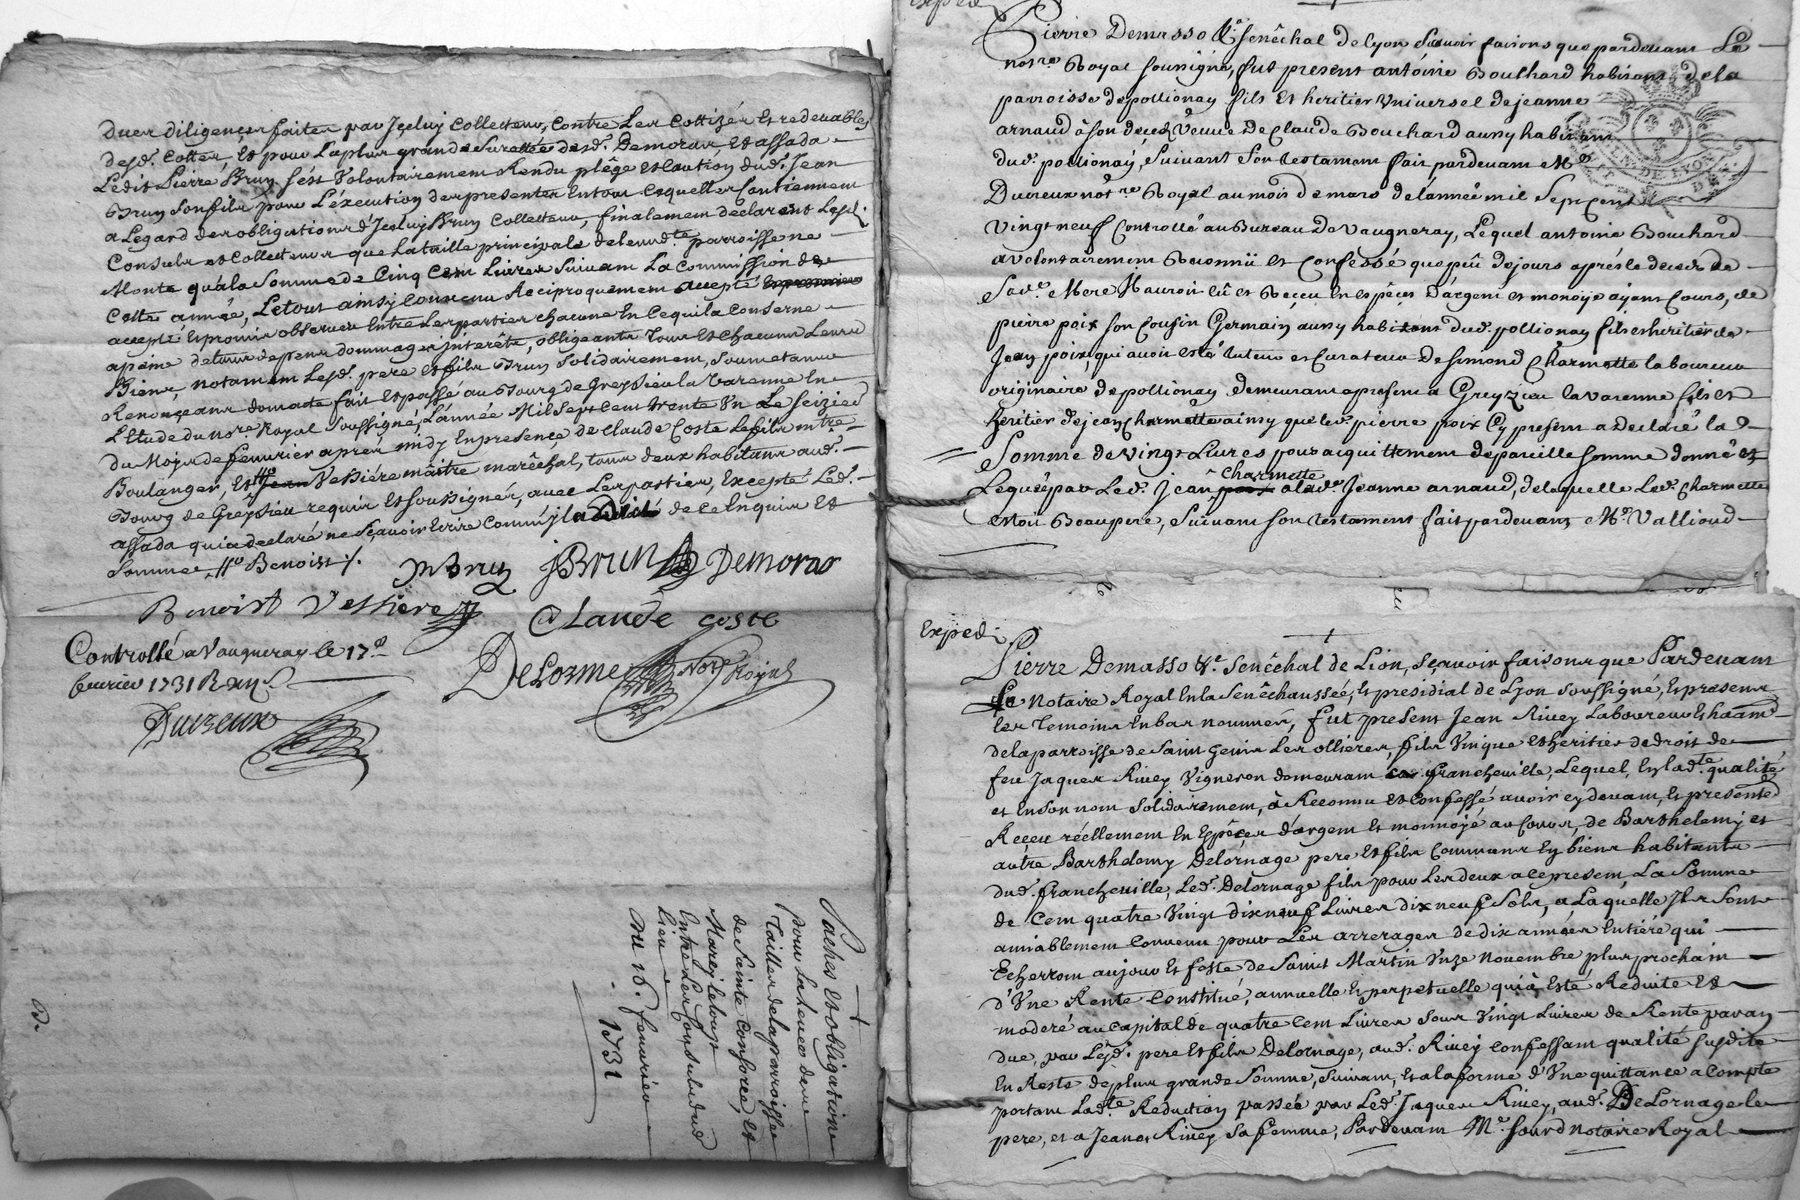 duer diligencer faiter par Iceluy Collecteur, Contre Ler Cottizér Et redevabler
desd. Cotter, Et pour La plur grande Suretté desd. Demorar, Et assada
Ledit Pierre Brun s'est Volontairement Rendu plêge et Caution dud. Jean
Brun Son filr pour L'execution der presenter En tout Cequeller Contiennent
a Legard der obligationr d'Iceluy Brun Collecteur, finalement declarent Lesd.
Consulr et Collecteur que La taille principale de laud.te parroisse ne
Monte qu'à la Somme de Cinq Cent Livrer Suivant La Commission de
Cette année, Le tout ainsy Convenu Reciproquement accepté
accepté Et promir observer Entre Ler partier chacune En Cequi la Conserne
apeine de tour depenr dommager interêtr, obligeantr Tour et Chacunr Leurr
Bienr, notament Lesd. pere et filr Brun Solidairement, Soumetanr
Renonçeanr dont acte fait et passé au Bourg de Greysieu la Varenne En
L'Etude du no.re Royal Soussigné, L'année Mil Sept Cent trente Un Le Seizied
du Moyr de fevrier apréz midy En presence de Claude Coste Le filr mtre
Boulanger, et Vessiére maitre maréchal, tour deux habitanr aud.
Bourg de Greysieu requir Et Soussignér, avec Ler partier, Excepté Led.
assada qui a declaré ne Sçavoir Ecrire Comm' Il a de ce Enquir Et
Sommé Benoist /.
J Brun J Brun Demoras
Benoist Vessiere Claude Coste
Controllé a Vaugneray le 17e
fevrier 1731 R
Delorme Not. Royal
Duvreux
Paches et obligationr
pour La levée der
Tailler de la parroisse
de Sainte Consorce, et
Marcy le loup
Entre Ler Consulr dud
Lieu
Du 16. fevrier
1731
Pierre Demasso &c Senêchal de Lyon Sçavoir faisons que pardevant Le
not.re Royal Soussigné, fut present Antoine Bouchard habitant de la
parroisse de pollionay fils Et heritier Universel de jeanne
arnaud à Son décez Veuve De Claude Bouchard aussy habitant
dud. pollionay, Suivant Son testament fait pardevant Me
Duvreux not.re Royal au mois de mars de l'année mil Sept Cent
Vingt neuf Controllé au Bureau de Vaugneray, Lequel antoine Bouchard
a volontairement Reconnû et Confessé que peû de jours aprés le deces de
Sad.e Mere Il auroit eû et Reçeu En espêces d'argent et monoye ayant Cours, de
pierre poix Son Cousin Germain, aussy habitant dud. pollionay fils et heritier de
Jean poix, qui avoit esté tuteur et Curateur de Simond Charmette laboureur
originaire de pollionay demeurant apresent a Greyzieu la varenne fils et
heritier de jean Charmette ainsy que led. pierre poix Cy present a declaré la
Somme de vingt Livres pour acquittement de pareille somme donnée et
Leguée par Led. Jean Charmette a lad.e Jeanne arnaud, de laquelle Led. Charmette
estoit Beaupere, Suivant Son testament fait pardevant Me Vallioud
Exped.
Pierre Demasso &c. Senêchal de Lion, Sçavoir faisonr que Pardevant
Le Notaire Royal En la Senêchaussée, Et presidial de Lyon Soussigné, Et presentr
Ler Temoinr En bar nommér, fut present Jean Rivey Laboureur Et haant
de la parroisse de Saint genir Ler ollierer, filr Unique et heritier de droit de
feu Jaquer Rivey Vigneron demeurant francheville, Lequel, En lad.te qualité
et En Son nom Solidairement, à Reconnu et Confessé, avoir cy devant, Et presente
Reçeu réellement En Espêcer d'argent Et monnoyé au Courr, de Barthelemy et
autre Barthelemy Delornage pere et filr Communr En bienr habitantr
dud. francheville, Led. Delornage filr pour Ler deux a ce present La Somme
de Cent quatre Vingt dix neuf Livrer dix neuf Solr, a Laquelle Ilr Sont
amiablement Convenu pour Ler arrerager de dix annéer Entiére qui
Echerront au jour Et feste de Saint Martin Unze Novembre plur prochain
d'Une Rente Constitué, annuelle Et perpetuelle qui à Esté Reduite Et
moderé au Capital de quatre Cent Livrer Sour Vingt Livrer de Rente par an
due, par Lesd. pere Et filr Delornage, aud. Rivey Confessant qualité Susdite
En Reste de plur grande Somme, Suivant, Et a la forme d'Une quittance a Compte
portant Lad.te Reduction passée par Led. Jaquer Rivey, aud. Delornage le
pere, et a Jeane Rivey Sa femme, Pardevant Me Sourd notaire Royal